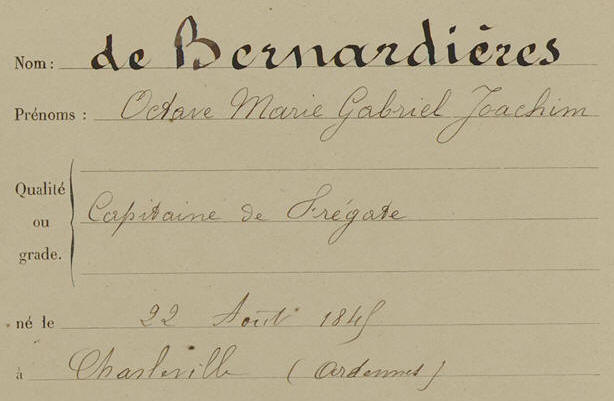 Nom : de Bernardières
Prénoms : Octave Marie Gabriel Joachim
Qualité
ou
grade.
Capitaine de Frégate
né le 22 Août 1845
à Charleville (Ardennes)